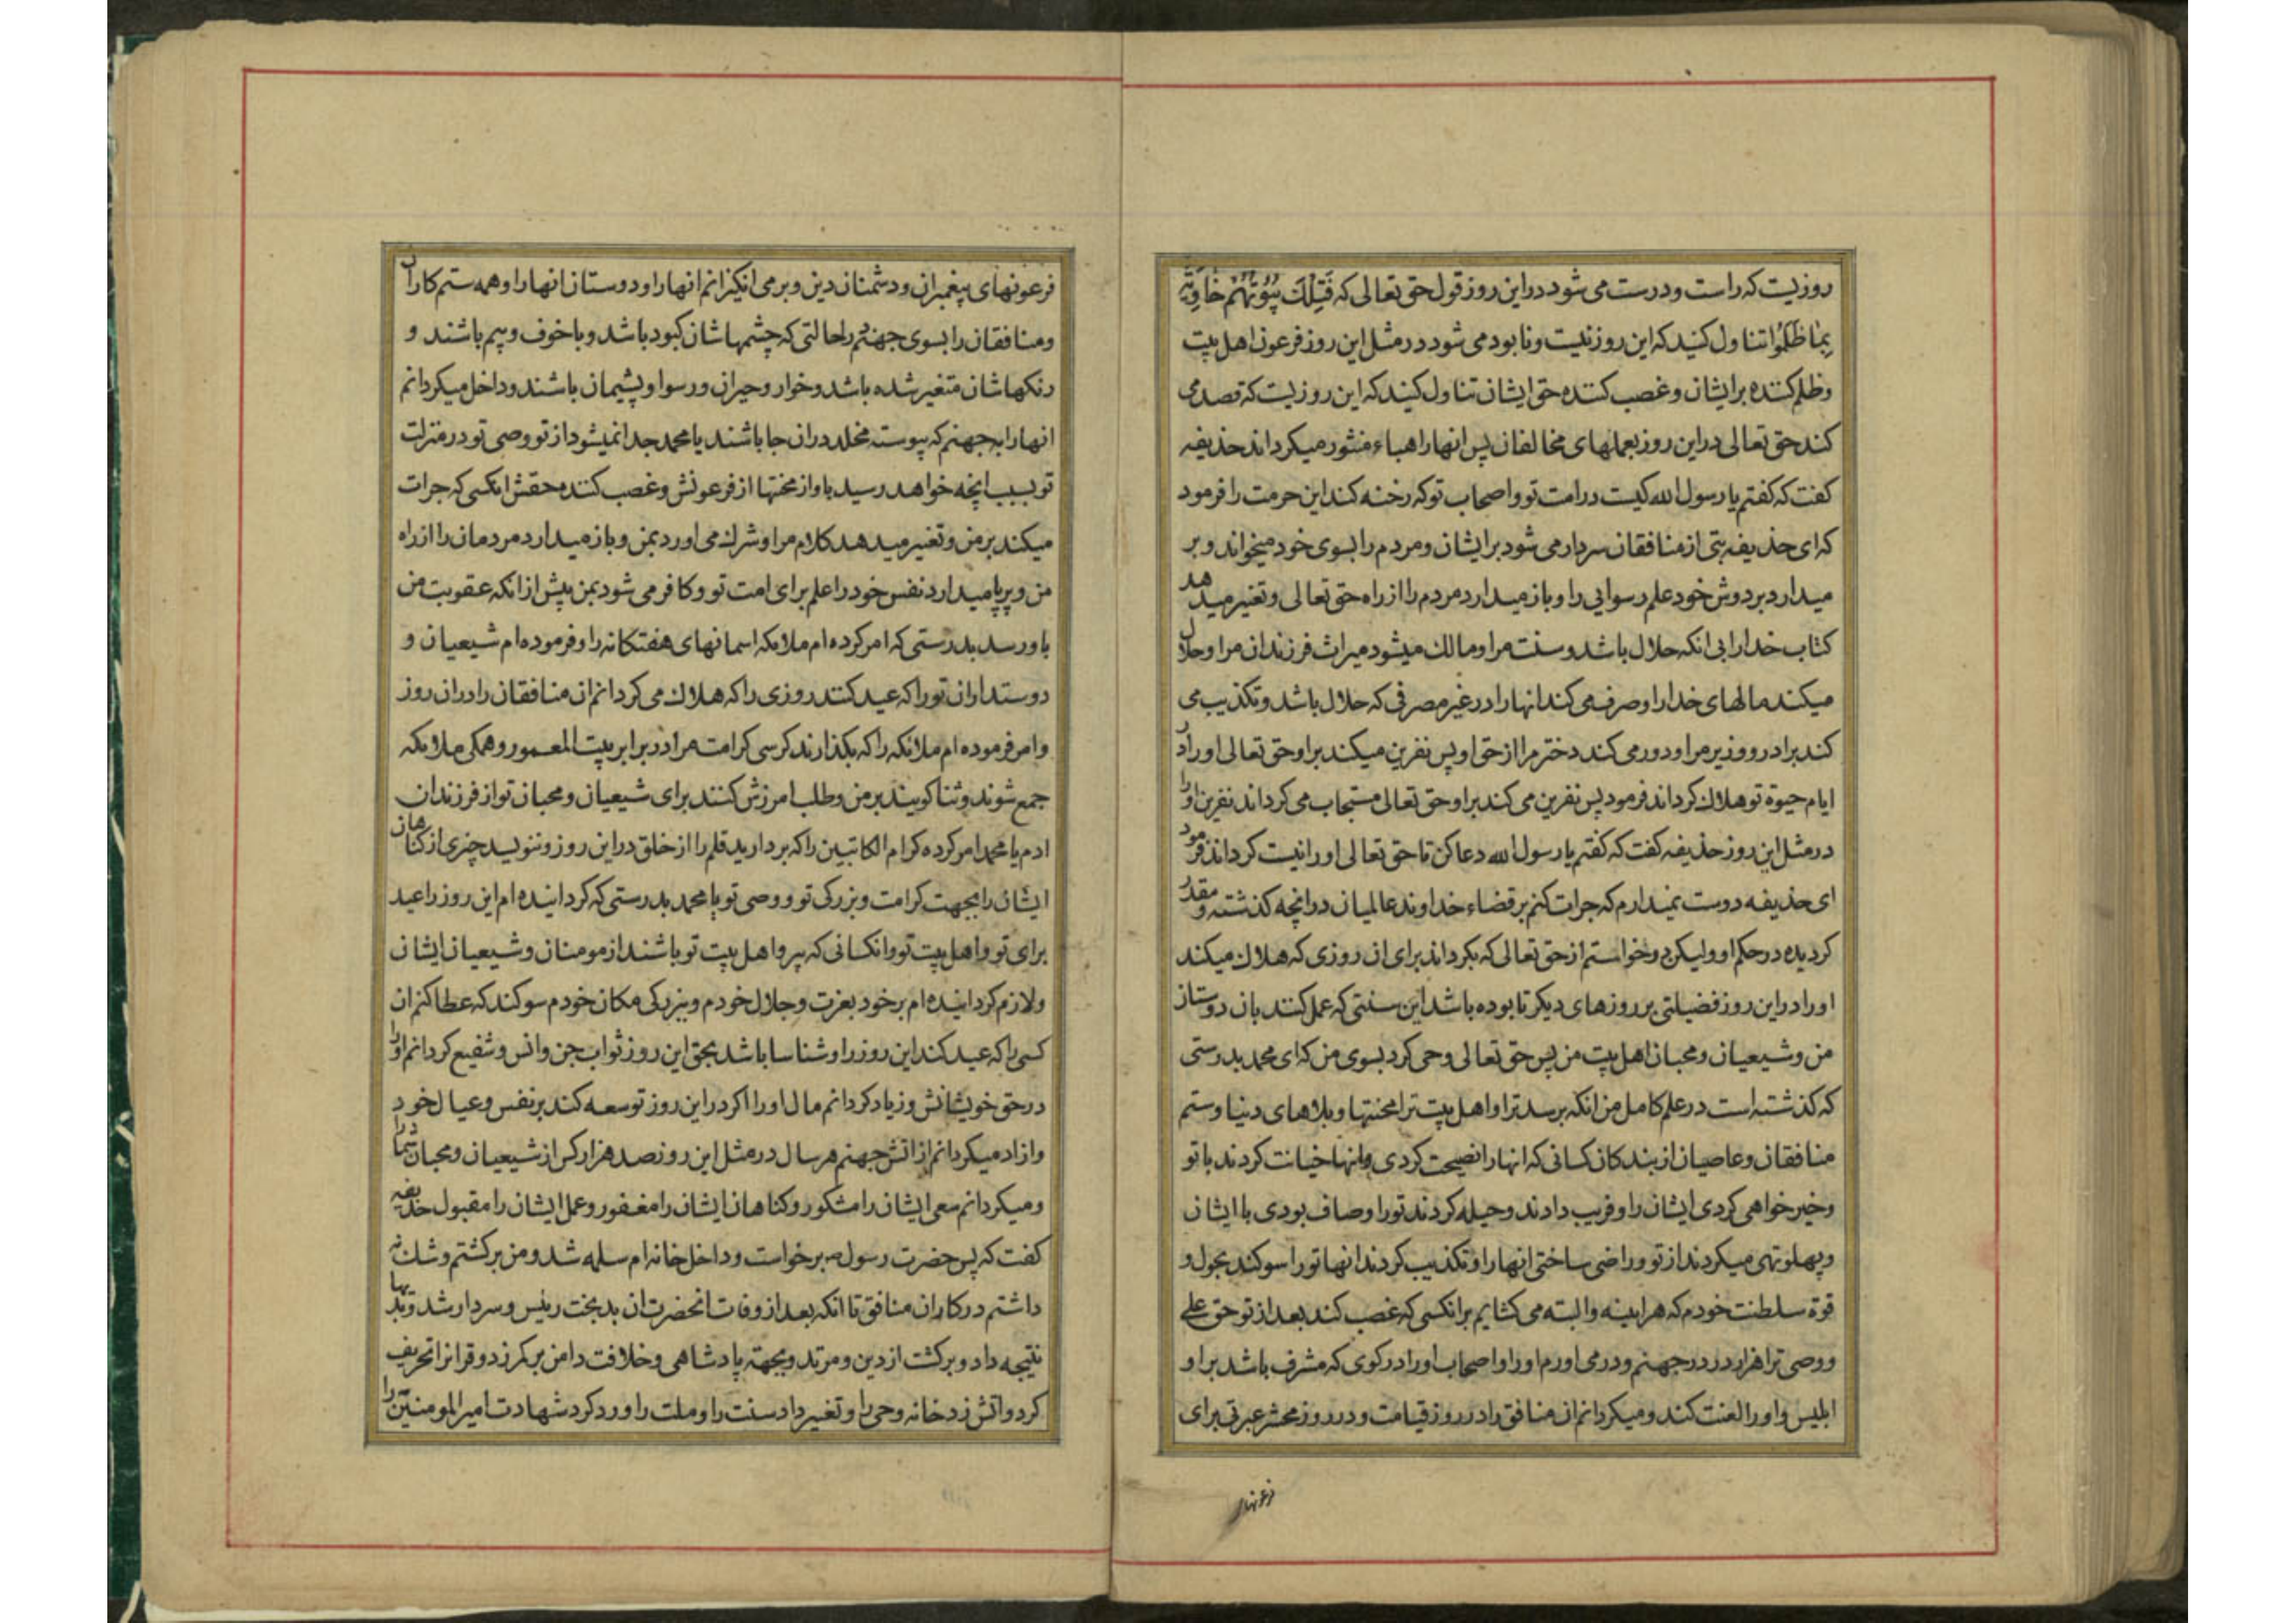 روزیست که راست و درست می شود در این روز قول حق تعالی که فَتِلْكَ بُیُوتُهُمْ خَاوِیَةً
بِمَا ظَلَمُوا تناول کنید که این روز نیست و نابود می شود در مثل این روز فرعون اهل بیت
و ظلم کننده بر ایشان و غصب کننده حق ایشان تناول کنید که این روزیست که قصد می
کند حق تعالی در این روز بعملهای مخالفان پس انها را هباء منثور میکرداند حذیفه
کفت که کفتم یا رسول الله کیست در امت تو و اصحاب تو که رخنه کند این حرمت را فرمود
که ای حذیفه بتی از منافقان سردار می شود بر ایشان و مردم را بسوی خود میخواند و بر
میدارد بر دوش خود علم رسوایی را و باز میدارد مردم را از راه حق تعالی و تغییر میدهد
کتاب خدا را بی انکه حلال باشد و سنت مرا و مالک میشود میراث فرزندان مرا و حلال
میکند مالهای خدا را و صرف می کند انها را در غیر مصرفی که حلال باشد و تکذیب می
کند برادر و وزیر مرا و دور می کند دختر مرا از حق او پس نفرین میکند بر او حق تعالی او را در
ایام حیوة تو هلاک کرداند فرمود پس نفرین می کند بر او حق تعالی مستجاب می کرداند نفرین او را
در مثل این روز حذیفه کفت که کفتم یا رسول الله دعا کن تا حق تعالی او را نیست کرداند فرمود
ای حذیفه دوست نمیدارم که جرات کنم بر قضاء خداوند عالمیان در انچه کذشته و مقدر
کردیده در حکم او ولیکن خواستم از حق تعالی که بکرداند برای ان روزی که هلاک میکند
او را در این روز فضیلتی بر روزهای دیکر تا بوده باشد این سنتی که عمل کنند بان دوستان
من و شیعیان و محبان اهل بیت من پس حق تعالی وحی کرد بسوی من که ای محمد بدرستی
که کذشته است در علم کامل من انکه برسد ترا و اهل بیت ترا محنتها و بلاهای دنیا و ستم
منافقان و عاصیان از بندکان کسانی که انها را نصیحت کردی و انها خیانت کردند با تو
و خیر خواهی کردی ایشان را و فریب دادند و حیله کردند تو را و صاف بودی با ایشان
و پهلو تهی میکردند از تو و راضی ساختی انها را و تکذیب کردند انها تو را سوکند بحول و
قوة سلطنت خودم که هراینه والبته می کشایم بر انکسی که غصب کند بعد از تو حق علی
و وصی ترا هزار در در جهنم و در می اورم او را و اصحاب او را در کوی که مشرف باشد بر او
ابلیس و او را لعنت کند و میکردانم ان منافق را در روز قیامت و در روز محشر عبرتی برای
فرعونهای
فرعونهای پیغمبران و دشمنان دین و بر می انکیزانم انها را و دوستان انها را و همه ستم کاران
و منافقان را بسوی جهنم در حالتی که چشمهاشان کبود باشد و با خوف و بیم باشند و
رنکهاشان متغیر شده باشد و خوار و حیران و رسوا و پشیمان باشند و داخل میکردانم
انها را به جهنم که پیوسته مخلد در ان جا باشند یا محمد جدا نمیشود از تو وصی تو در منزلت
تو بسبب انچه خواهد رسید باو از محنتها از فرعونش و غصب کننده حقش انکسی که جرات
میکند بر من و تغییر میدهد کلام مرا و شرک می اورد بمن و باز میدارد مردمان را از راه
من و برپا میدارد نفس خود را علم برای امت تو و کافر می شود بمن پیش از انکه عقوبت من
باو رسد بدرستی که امر کرده ام ملائکه اسمانهای هفتکانه را و فرموده ام شیعیان و
دوستداران تو را که عید کنند روزی را که هلاک می کردانم ان منافقان را در ان روز
و امر فرموده ام ملائکه را که بکذارند کرسی کرامت مرا در برابر بیت المعمور و همکی ملائکه
جمع شوند و ثنا کویند بر من و طلب امرزش کنند برای شیعیان و محبان تو از فرزندان
ادم یا محمد امر کرده کرام الکاتبین را که بردارید قلم را از خلق در این روز و ننویسید چیزی از کناهان
ایشان را بجهت کرامت و بزرکی تو و وصی تو یا محمد بدرستی که کردانیده ام این روز را عید
برای تو و اهل بیت تو و انکسانی که پیرو اهل بیت تو باشند از مومنان و شیعیان ایشان
و لازم کردانیده ام بر خود بعزت و جلال خودم و بزرکی مکان خودم سوکند که عطا کنم ان
کسی را که عید کند این روز را و شناسا باشد بحق این روز ثواب جن و انس و شفیع کردانم او را
در حق خویشانش و زیاد کردانم مال او را اکر در این روز توسعه کند بر نفس و عیال خود
و ازاد میکردانم از اتش جهنم هر سال در مثل این روز صد هزار کس از شیعیان و محبان شما را
و میکردانم سعی ایشان را مشکور و کناهان ایشان را مغفور و عمل ایشان را مقبول حذیفه
کفت که پس حضرت رسول ص برخواست و داخل خانه ام سلمه شد و من برکشتم و شک نه
داشتم در کار ان منافق تا انکه بعد از وفات انحضرت ان بدبخت رئیس و سردار شد و بدیها
نتیجه داد و برکشت از دین و مرتد و بجهة پادشاهی و خلافت دامن بر کمر زد و قرانرا تحریف
کرد و اتش زد خانه وحی را و تغییر داد سنت را و ملت را و رد کرد شهادت امیر المومنین را